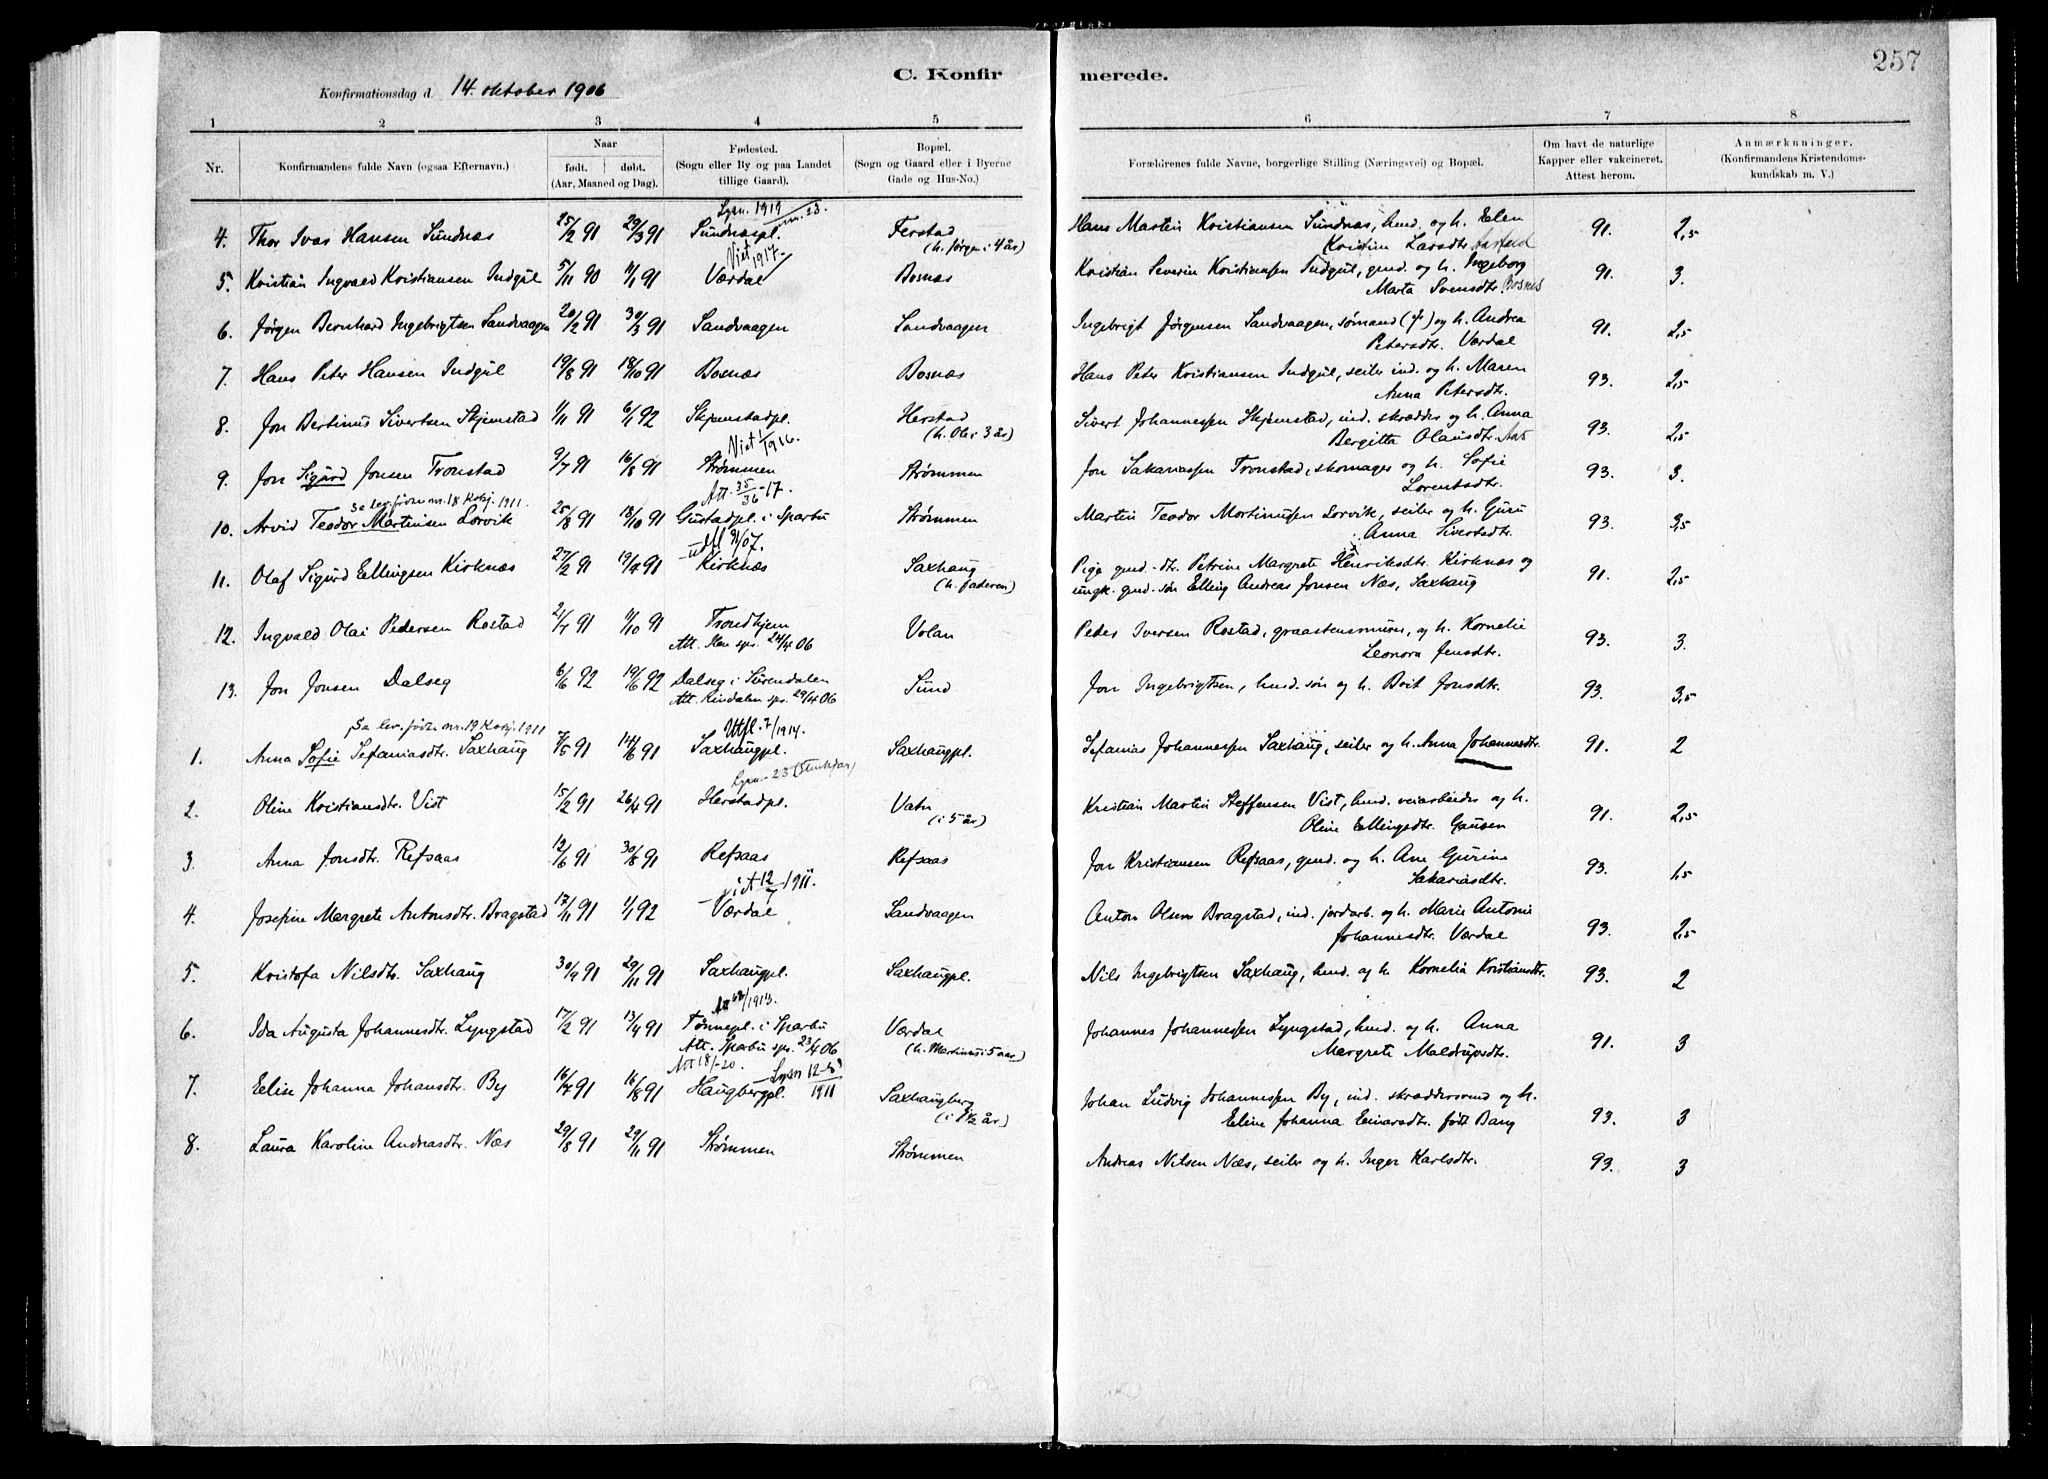 257
C. Konfirmerede.
Konfirmationsdag d. 14. oktober 1906
1 2 3 4 5 6 7 8
Nr. Konfirmandens fulde Navn (ogsaa Efternavn.) Naar født. døbt. (Aar, Maaned og Dag). Fødested. (Sogn eller By og paa Landet tillige Gaard). Bopæl. (Sogn og Gaard eller i Byerne Gade og Hus-No.) Forældrenes fulde Navne, borgerlige Stilling (Næringsvei) og Bopæl. Om havt de naturlige Kapper eller vakcineret. Attest herom. Anmærkninger. (Konfirmandens Kristendomskundskab m. V.)
Lysn. 1919 nr. 23.
4. Thor Ivar Hansen Sundnæs 25/2 91 29/3 91 Sundnæspl. Ferstad Hans Martin Kristiansen Sundnæs, husm. og h. Elen 91. 2,5
(h. Jørgen i 4 år) Kristine Larsdtr.
Viet 1917.
5. Kristian Ingvald Kristiansen Indgul 5/11 90 11/1 91 Værdal Bosnæs Kristian Severin Kristianssen Indgul, gmd. og h. Ingeborg 91. 3.
Marta Svensdtr. Bosnes
6. Jørgen Bernhard Ingebrigtsen Sandvaagen 20/2 91 30/3 91 Sandvaagen Sandvaagen Ingebrigt Jørgensen Sandvaagen, sømand (†) og h. Andrea 91. 2,5
Petersdtr. Værdal
7. Hans Peter Hansen Indgul 19/8 91 18/10 91 Bosnæs Bosnæs Hans Peter Kristiansen Indgul, seiler ind. og h. Maren 93. 2,5
Anna Petersdtr.
8. Jon Bertinus Sivertsen Skjemstad 1/11 91 6/1 92 Skjemstadpl. Herstad Sivert Johannessen Skjemstad, ind. skrædder og h. Anna 93. 2,5
(h. Ole i 3 år) Bergitta Olausdtr.
Viet 1/1916.
9. Jon Sigurd Jonsen Tronstad 9/7 91 16/8 91 Strømmen Strømmen Jon Sakariassen Tronstad, skomager og h. Sofie 93. 3.
Lorentsdtr.
Se lev. fødte nr. 18 Kobj. 1911. Att. 35/36-17.
10. Arvid Teodor Martinsen Lorvik 25/8 91 18/10 91 Gustadpl. i Sparbu Strømmen Martin Teodor Mortinussen Lorvik, seiler og h. Guru 93. 3,5
Anna Sivertsdtr.
11. Olaf Sigurd Ellingsen Kirknæs 27/2 91 19/4 91 Kirknæs Saxhaug Pige gmd.-dtr. Petrine Margrete Henriksdtr. Kirknæs og 91. 2,5
(h. faderen) ungk. gmd.-søn Elling Andreas Jonsen Næs, Saxhaug
12. Ingvald Olai Pedersen Rostad 2/7 91 11/10 91 Trondhjem Volan Peder Iversen Rostad, graastensmurer, og h. Kornelie 93. 3.
Leonora Jensdtr.
13. Jon Jonsen Dalseg 6/6 92 19/6 92 Dalseg i Surendalen Sund Jon Ingebrigtsen, husm. søn og h. Brit Jonsdtr. 93. 3,5
Att. Rindalen sps. 29/4 06
Se lev. fødte nr. 19 Kobj. 1911 Utfl. 7/1914.
1. Anna Sofie Sefaniasdtr. Saxhaug 7/5 91 14/6 91 Saxhaugpl. Saxhaugpl. Sefanias Johannessen Saxhaug, seiler og h. Anna Johannesdtr. 91. 2
2. Oline Kristiansdtr. Vist 15/2 91 26/4 91 Herstadpl. Vatn Kristian Martin Steffensen Vist, husm. veiarbeider og h. 91. 2,5
(i 5 år) Oline Ellingsdtr. Gausen
3. Anna Jonsdtr. Refsaas 12/6 91 30/8 91 Refsaas Refsaas Jon Kristiansen Refsaas, gmd. og h. Ane Gurine 93. 1,5
Sakariasdtr.
Viet 12/7 1911.
4. Josefine Margrete Antonsdtr. Bragstad 17/11 91 1/1 92 Værdal Sandvaagen Anton Olsen Bragstad, ind. jordarb. og h. Marie Antonie 93. 2,5
Johannesdtr. Værdal
5. Kristofa Nilsdtr. Saxhaug 30/9 91 29/11 91 Saxhaugpl. Saxhaugpl. Nils Ingebrigtsen Saxhaug, husm. og h. Kornelia Kristiansdtr. 93. 2
6. Ida Augusta Johannesdtr. Lyngstad 17/2 91 13/4 91 Tønnepl. i Sparbu Værdal Johannes Johannessen Lyngstad, husm. og h. Anna 91. 3
Att. Sparbu sps. 23/4 06 (h. Martinus i 5 aar) Margrete Maldrupsdtr.
Att 18/-20. Lysn 12-8 1911
7. Elise Johanna Johansdtr. By 16/7 91 16/8 91 Haugbergpl. Saxhaugberg Johan Ludvig Johannessen By, ind. skræddersvend og h. 93. 3
Eline Johanna Einarsdtr. født Bang
8. Laura Karoline Andreasdtr. Næs 29/8 91 29/11 91 Strømmen Strømmen Andreas Nilsen Næs, seiler og h. Inger Karlsdtr. 93. 3